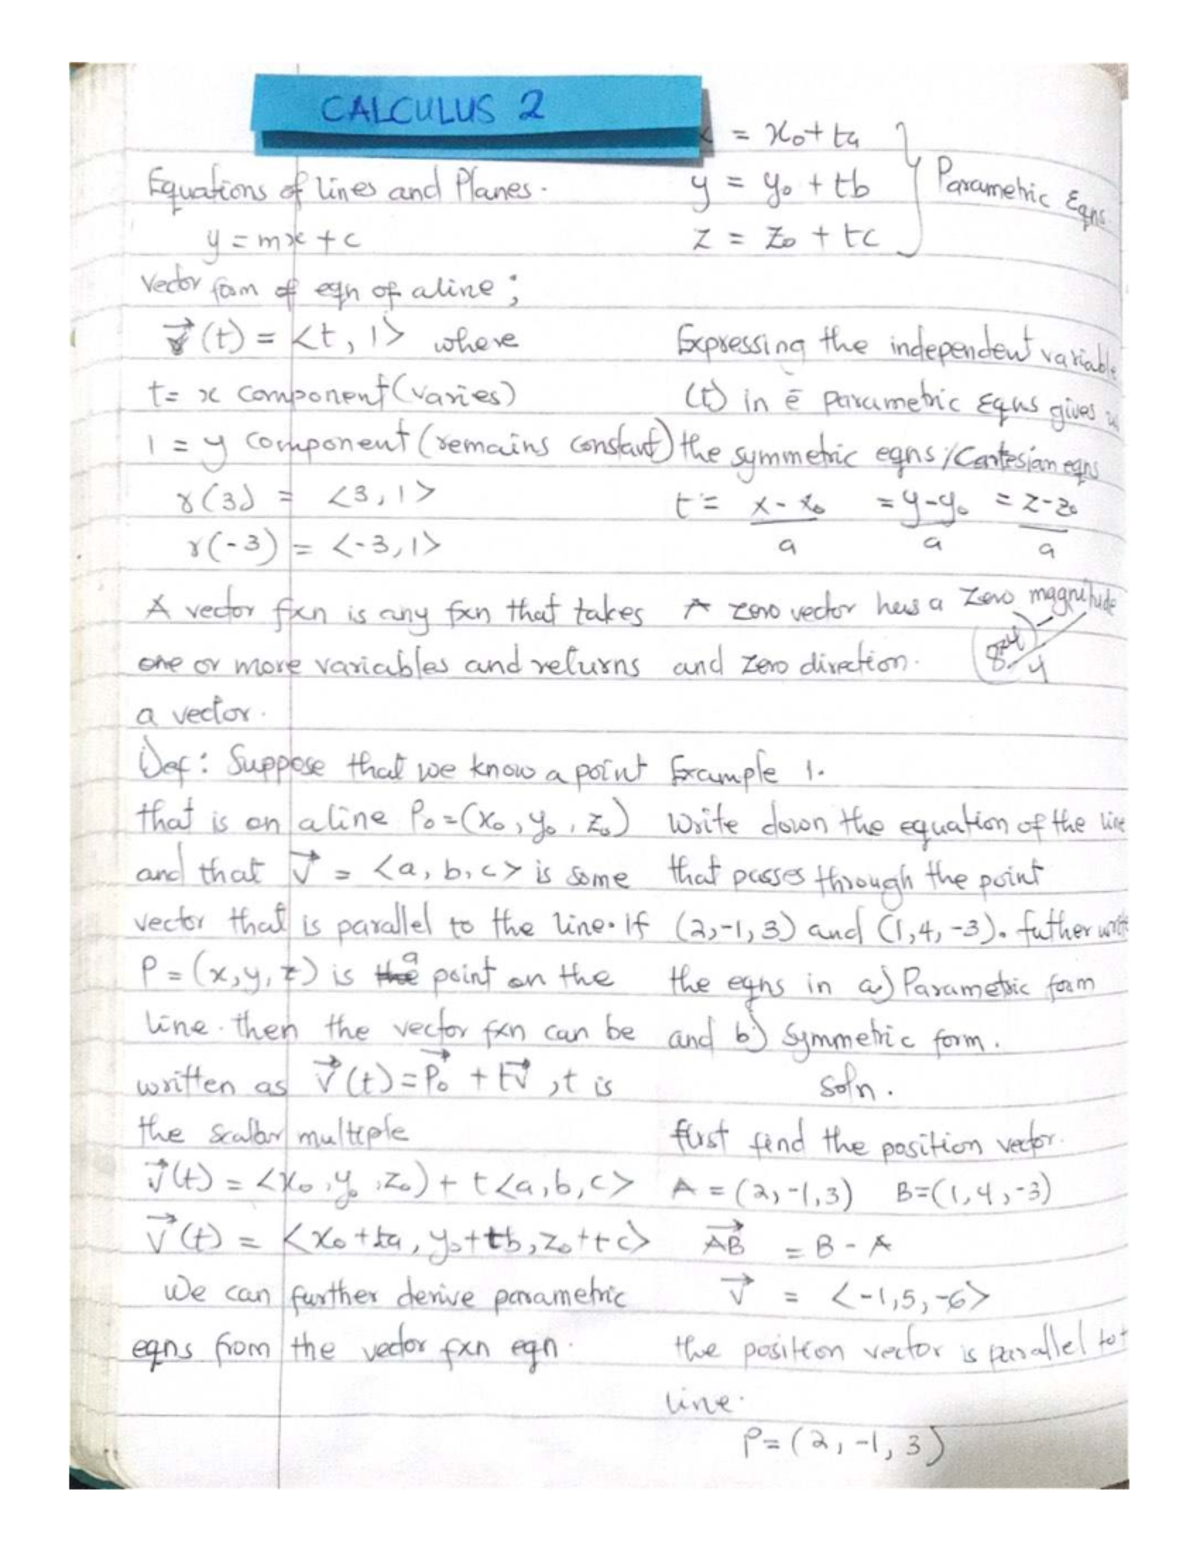 CALCULUS 2
Equations of lines and Planes.
y = mx + c
Vector form of eqn of a line ;
r⃗(t) = <t, 1> where
t = x component (varies)
1 = y component (remains constant)
r(3) = <3, 1>
r(-3) = <-3, 1>
A vector fxn is any fxn that takes
one or more variables and returns
a vector.
Def : Suppose that we know a point
that is on a line P₀ = (x₀, y₀, z₀)
and that v⃗ = <a, b, c> is some
vector that is parallel to the line. If
P = (x, y, z) is a point on the
line. then the vector fxn can be
written as v⃗(t) = P₀⃗ + tv⃗, t is
the scalar multiple
v⃗(t) = <x₀, y₀, z₀) + t<a, b, c>
v⃗(t) = <x₀ + ta, y₀ + tb, z₀ + tc>
We can further derive parametric
eqns from the vector fxn eqn.
= x₀ + ta
y = y₀ + tb
z = z₀ + tc
} Parametric Eqns.
Expressing the independent variable
(t) in ē parametric Eqns gives
the symmetric eqns / Cartesian eqns
t = x - x₀ = y - y₀ = z - z₀
a a a
A zero vector has a zero magnitude
and zero direction.
Example 1.
Write down the equation of the line
that passes through the point
(2, -1, 3) and (1, 4, -3). futher write
the eqns in a) Parametric form
and b) Symmetric form.
Soln.
first find the position vector.
A = (2, -1, 3) B = (1, 4, -3)
AB⃗ = B - A
v⃗ = <-1, 5, -6>
the position vector is parallel to t
line.
P = (2, -1, 3)